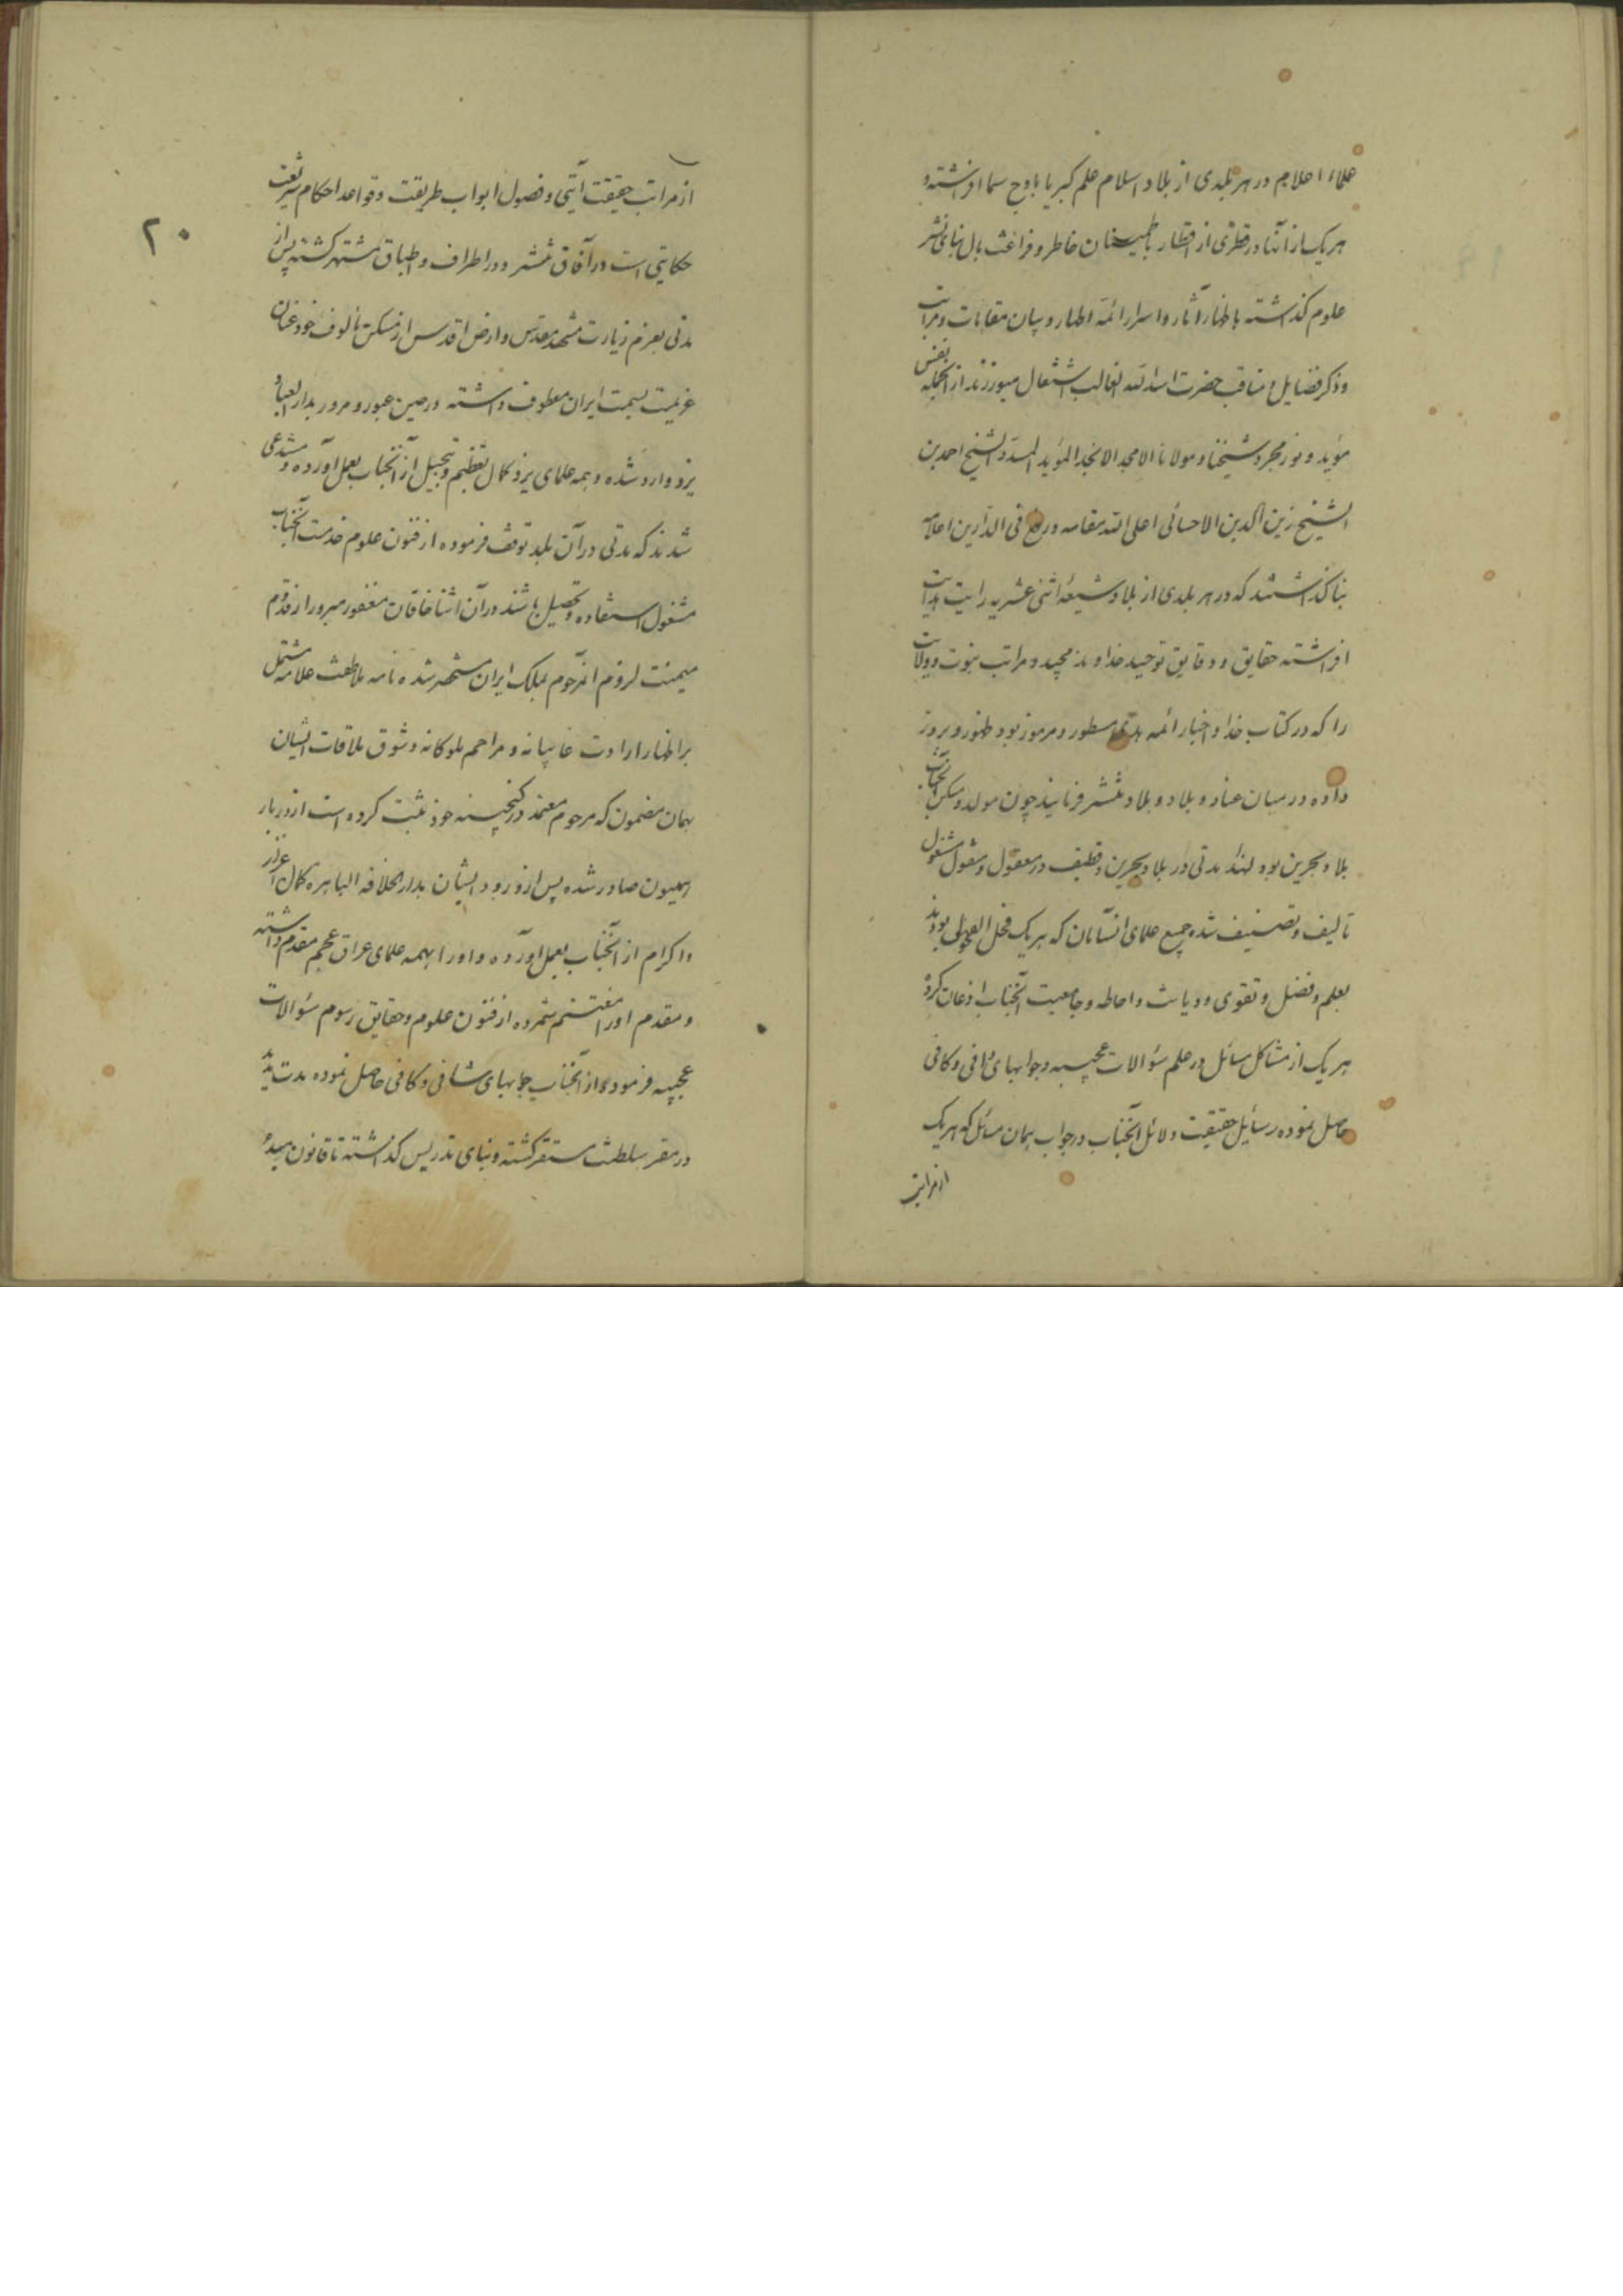 علماء اعلام در هر بلدی از بلاد اسلام علم کبریا باوج سما افراشته و
هر یک از آنها در قطری از اقطار باطمینان خاطر و فراغت بال بنای نشر
علوم گذاشته باظهار آثار و اسرار ائمه اطهار و بیان مقامات و مراتب
و ذکر فضایل و مناقب حضرت اسد الله الغالب اشتغال میورزند از آنجمله نفس
مؤید و نور مجرد شیخنا و مولانا الامجد الانجد المؤید المسدد الشیخ احمد بن
الشیخ زین الدین الاحسائی اعلی الله مقامه و رفع فی الدارین اعلامه
بنا گذاشتند که در هر بلدی از بلاد شیعهٔ اثنی عشریه رایت هدایت
افراشته حقایق و دقایق توحید خداوند مجید و مراتب نبوت و ولایت
را که در کتاب خدا و اخبار ائمه هدی مسطور و مرموز بود ظهور و بروز
داده در میان عباد و بلاد منتشر فرمایند چون مولد و مسکن آنجناب
بلاد بحرین بود لهذا مدتی در بلاد بحرین و قطیف در معقول و منقول مشغول
تالیف و تصنیف شده جمیع علمای آنسامان که هر یک فحل الفحولی بودند
بعلم و فضل و تقوی و دیانت و احاطه و جامعیت آنجناب اذعان کرده
هر یک از مشاکل مسائل در علم سؤالات عجیبه و جوابهای وافی و کافی
حاصل نموده رسایل حقیقت دلائل آنجناب در جواب همان مسائل که هر یک
از مراتب
۲۰
از مراتب حقیقت آیتی و فصول ابواب طریقت و قواعد احکام شریعت
حکایتی است در آفاق منتشر و در اطراف و اطباق مشتهر گشته پس از
مدتی بعزم زیارت مشهد مقدس و ارض اقدس از مسکن مألوف خود عنان
عزیمت بسمت ایران معطوف داشته در حین عبور و مرور بدار العباد
یزد وارد شده و همه علمای یزد کمال تعظیم و تبجیل از آنجناب بعمل آورده و مستدعی
شدند که مدتی در آن بلد توقف فرموده از فنون علوم خدمت آنجناب
مشغول استفاده و تحصیل باشند در آن اثنا خاقان مغفور مبرور از قدوم
میمنت لزوم آنمرحوم بملک ایران مستحضر شده نامه ملاطفت علامه مشتمل
بر اظهار ارادت غایبانه و مراحم ملوکانه و شوق ملاقات ایشان
بهمان مضمون که مرحوم معتمد در گنجینه خود ثبت کرده است از دربار
همیون صادر شده پس از ورود ایشان بدار الخلافه الباهره کمال اعزاز
و اکرام از آنجناب بعمل آورده و او را بهمه علمای عراق عجم مقدم داشته
و مقدم او را مغتنم شمرده از فنون علوم و حقایق رسوم سؤالات
عجیبه فرموده از آنجناب جوابهای شافی و کافی حاصل نموده مدت مدید
در مقر سلطنت مستقر گشته و بنای تدریس گذاشته تا قانون مبدء